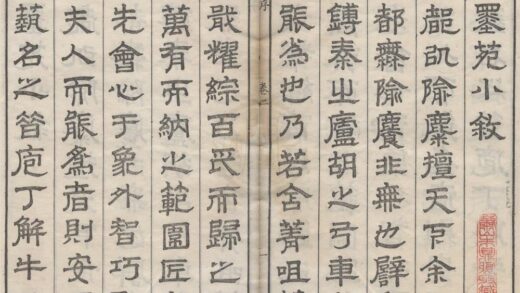 墨苑小敘
隃麋擅天下余
都無隃麋非無也辟
鎛秦之廬胡之弓車
能為也乃若含菁咀
耀綜百氏而歸之
萬有而納之範圍匠
先會心于象外智巧
夫人而能為者則安
藝名之昔庖丁解牛